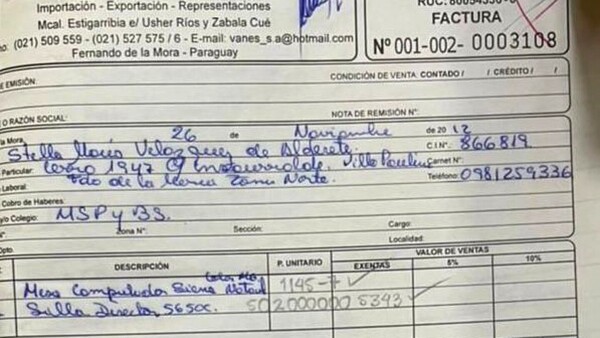 Importación - Exportación - Representaciones
Mcal. Estigarribia e/ Usher Ríos y Zabala Cué
(021) 509 559 - (021) 527 575 / 6 - E-mail: vanes_s.a@hotmail.com
Fernando de la Mora - Paraguay
FACTURA
Nº 001-002- 0003108
EMISIÓN:
CONDICIÓN DE VENTA: CONTADO / / CRÉDITO / /
O RAZÓN SOCIAL:
NOTA DE REMISIÓN Nº:
la Mora, 26 de Noviembre de 2012
Stella Maris Velazquez de Alderete. C.I Nº: 866819
Particular: 1947 Villa Carnet Nº
Fdo de la Mora Zona Norte. Teléfono: 0981259336
Laboral:
Cobro de Haberes:
y/o Colegio: MSP y BS. Cargo:
Zona Nº: Sección: Localidad:
Dpto.
DESCRIPCIÓN P. UNITARIO VALOR DE VENTAS
EXENTAS 5% 10%
Mesa Computador 1145-7
Silla Director 565OC. 502000000 5393